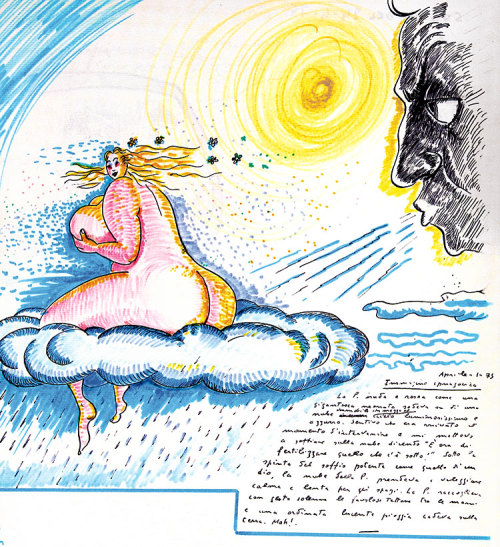 Aprile 1° 75
Immagine ipnagogica
La P. nuda e rosea come una
gigantesca mammata sedeva su di una
nube cielo luminosissimo e
azzurro. Sentivo che era arrivato il
momento d'intervenire e mi mettevo
a soffiare sulla nube dicendo "È ora di
fertilizzare quello che c'è sotto". Sotto la
spinta del soffio potente come quello di un
dio, la nube della P. prendeva a veleggiare
calma e lenta per gli spazi. La P. raccoglieva
con gesto solenne le favolose tettone tra le mani
e una ordinata lucente pioggia cadeva sulla
terra. Mah!